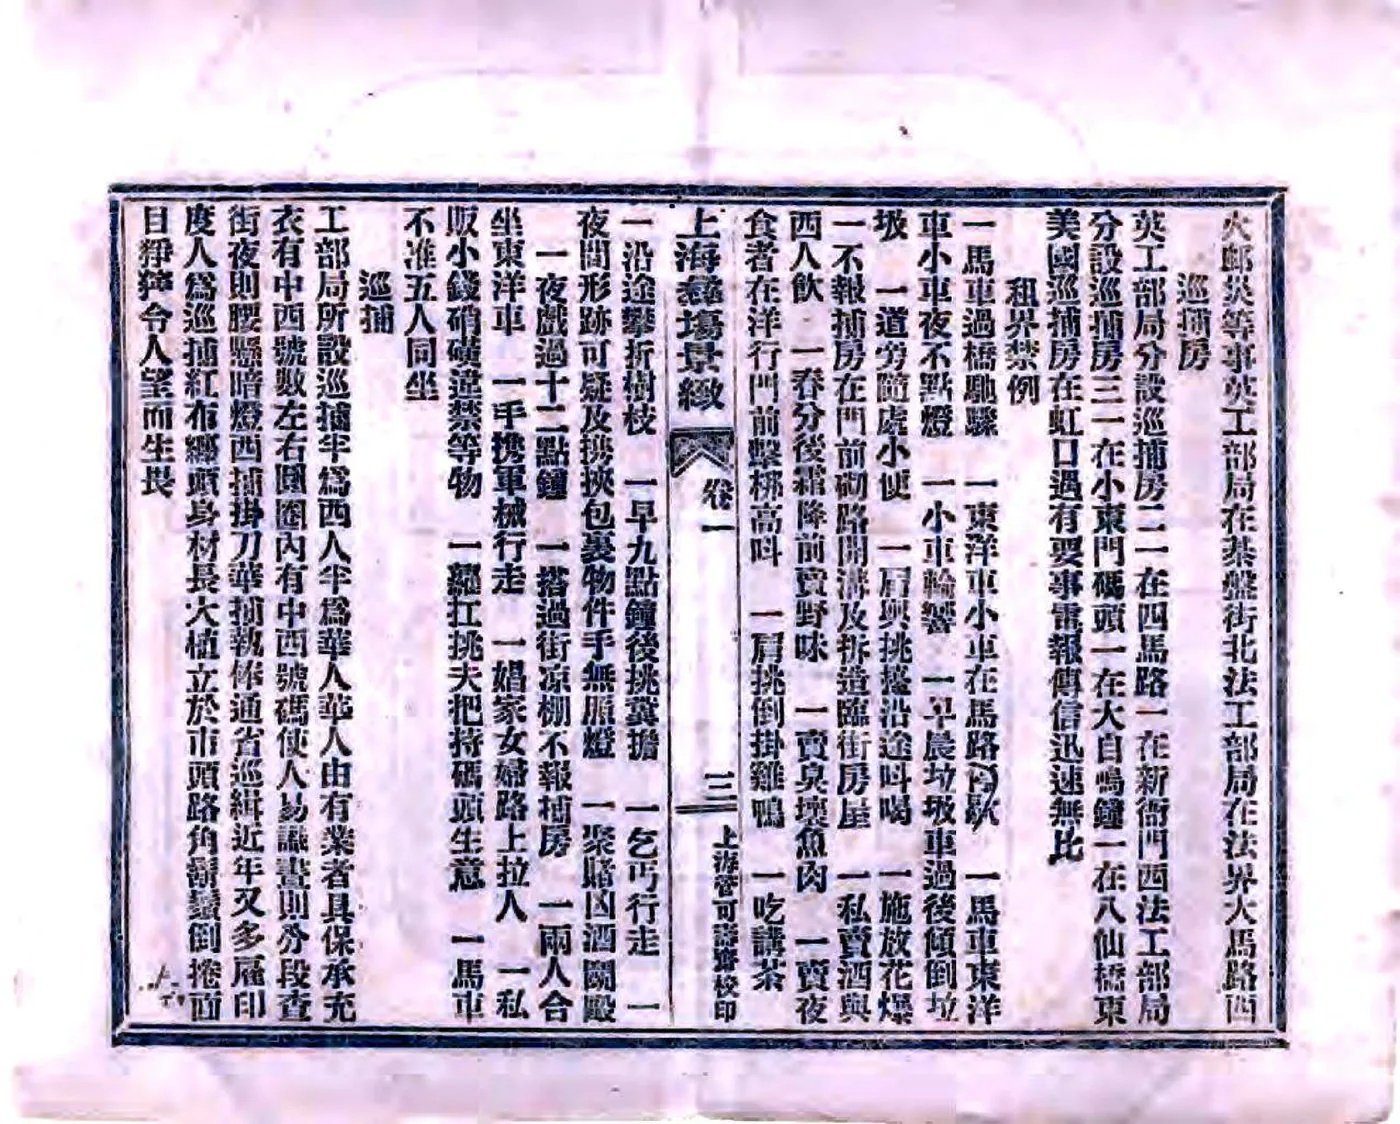 火郵災等事英工部局在棊盤街北法工部局在法界大馬路西
巡捕房
英工部局分設巡捕房二一在四馬路一在新衙門西法工部局
分設巡捕房三一在小東門碼頭一在大自鳴鐘一在八仙橋東
美國巡捕房在虹口過有要事電報傳信迅速無比
租界禁例
一馬車過橋馳驟 一東洋車小車在馬路停歇 一馬車東洋
車小車夜不點燈 一小車輪響 一早晨垃圾車過後傾倒垃
圾 一道旁隨處小便 一肩輿挑擡沿途叫喝 一施放花爆
一不報捕房在門前砌路開溝及拆造臨街房屋 一私賣酒與
西人飲 一春分後霜降前賣野味 一賣臭壞魚肉 一賣夜
食者在洋行門前擊梆高叫 一肩挑倒掛雞鴨 一吃講茶
上海彝塲景緻 卷一 三 上海管可壽齋校印
一沿途攀折樹枝 一早九點鐘後挑糞擔 一乞丐行走 一
夜間形跡可疑及携挾包裹物件手無照燈 一聚賭凶酒鬭毆
一夜戲過十二點鐘 一搭過街凉棚不報捕房 一兩人合
坐東洋車 一手攜軍械行走 一娼家女婦路上拉人 一私
販小錢硝磺違禁等物 一繩扛挑夫把持碼頭生意 一馬車
不准五人同坐
巡捕
工部局所設巡捕半爲西人半爲華人華人由有業者具保承充
衣有中西號數左右圓圈內有中西號碼使人易識晝則分段查
街夜則腰懸暗燈西捕掛刀華捕執棒通宵巡緝近年又多雇印
度人爲巡捕紅布纏頭身材長大植立於市頭路角鬍鬚倒捲面
目猙獰令人望而生畏